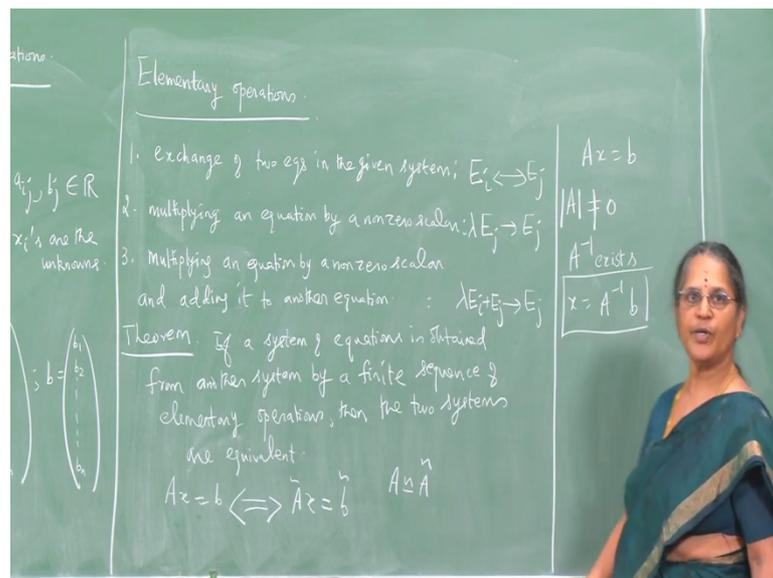 ations.
aij, bj ∈ ℝ
xi's are the
unknowns.
; b = (b1
b2
bn)
Elementary operations.
1. exchange of two eqs in the given system; Ei ↔ Ej
2. multiplying an equation by a nonzero scalar: λEj → Ej
3. multiplying an equation by a nonzero scalar
and adding it to another equation : λEi+Ej → Ej
Theorem. If a system of equations in obtained
from another system by a finite sequence of
elementary operations, then the two systems
are equivalent.
Ax = b ⟺ Ãx = b̃ A ≃ Ã
Ax = b
|A| ≠ 0
A⁻¹ exists
x = A⁻¹ b